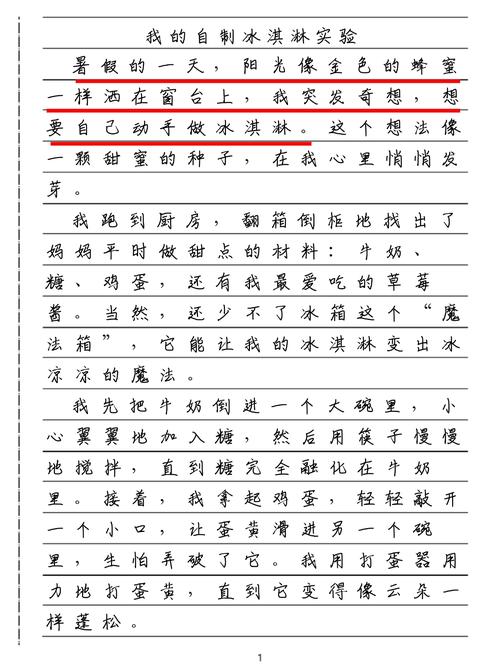 我的自制冰淇淋实验
暑假的一天，阳光像金色的蜂蜜
一样洒在窗台上，我突发奇想，想
要自己动手做冰淇淋。这个想法像
一颗甜蜜的种子，在我心里悄悄发
芽。
我跑到厨房，翻箱倒柜地找出了
妈妈平时做甜点的材料：牛奶、
糖、鸡蛋，还有我最爱吃的草莓
酱。当然，还少不了冰箱这个“魔
法箱”，它能让我的冰淇淋变出冰
凉凉的魔法。
我先把牛奶倒进一个大碗里，小
心翼翼地加入糖，然后用筷子慢慢
地搅拌，直到糖完全融化在牛奶
里。接着，我拿起鸡蛋，轻轻敲开
一个小口，让蛋黄滑进另一个碗
里，生怕弄破了它。我用打蛋器用
力地打蛋黄，直到它变得像云朵一
样蓬松。
1